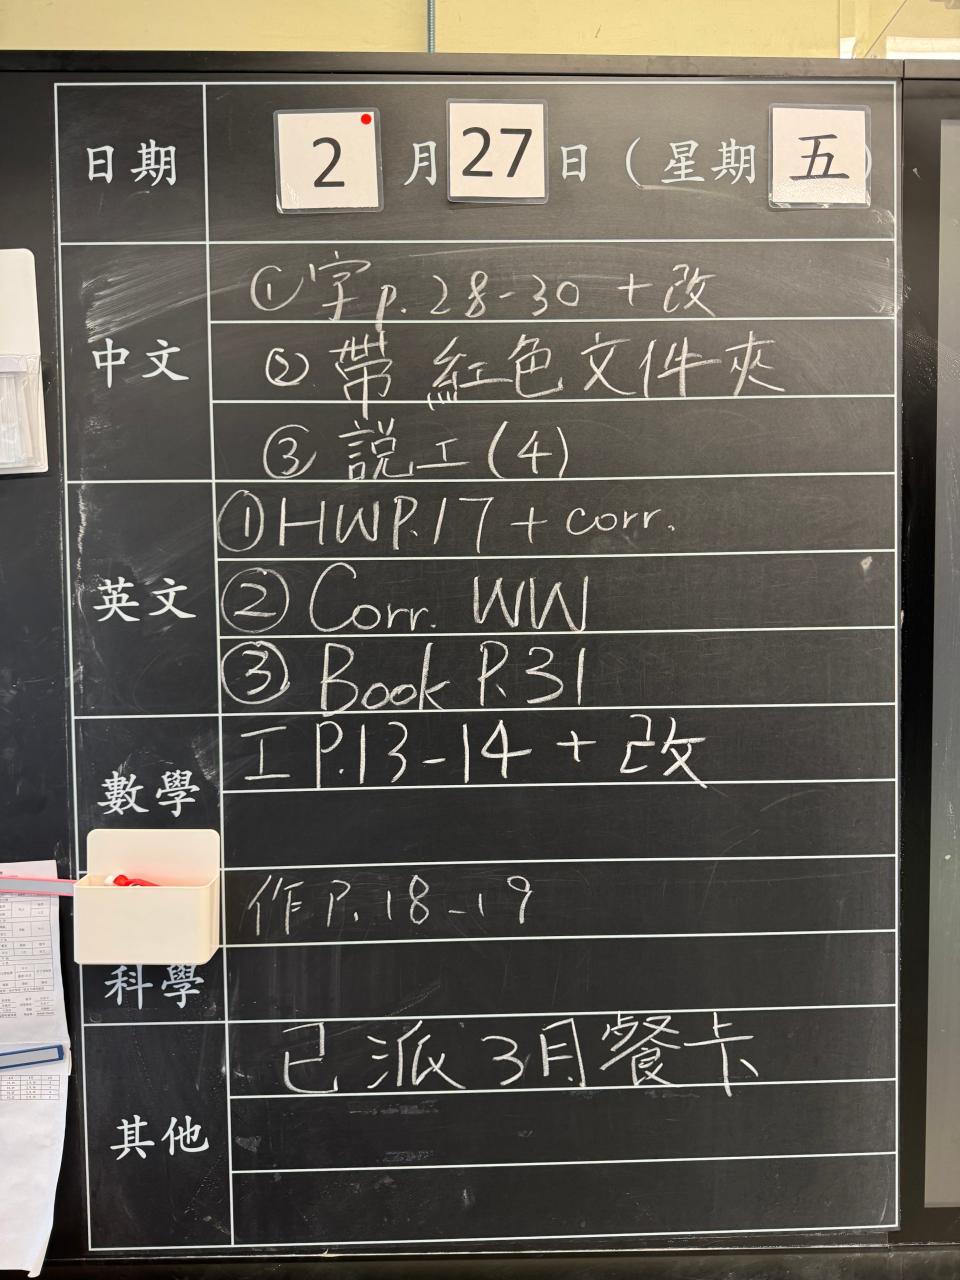 日期 2月27日（星期五）
中文
①字p.28-30+改
②帶紅色文件夾
③説工(4)
英文
①HWP.17+corr.
②Corr. WW
③Book P.31
數學
工P.13-14+改
科學
作P.18-19
其他
已派3月餐卡